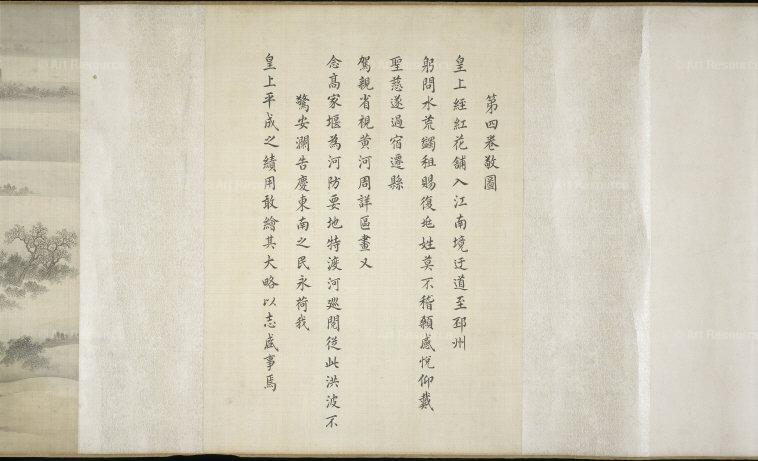 第四卷敬圖
皇上經紅花舖入江南境迂道至邳州
躬問水荒蠲租賜復兆姓莫不稽顙感悅仰戴
聖慈遂過宿遷縣
駕親省視黄河周詳區畫又
念高家堰為河防要地特渡河廵閱從此洪波不
驚安瀾告慶東南之民永荷我
皇上平成之績用敢繪其大略以志盛事焉
© Art Resource